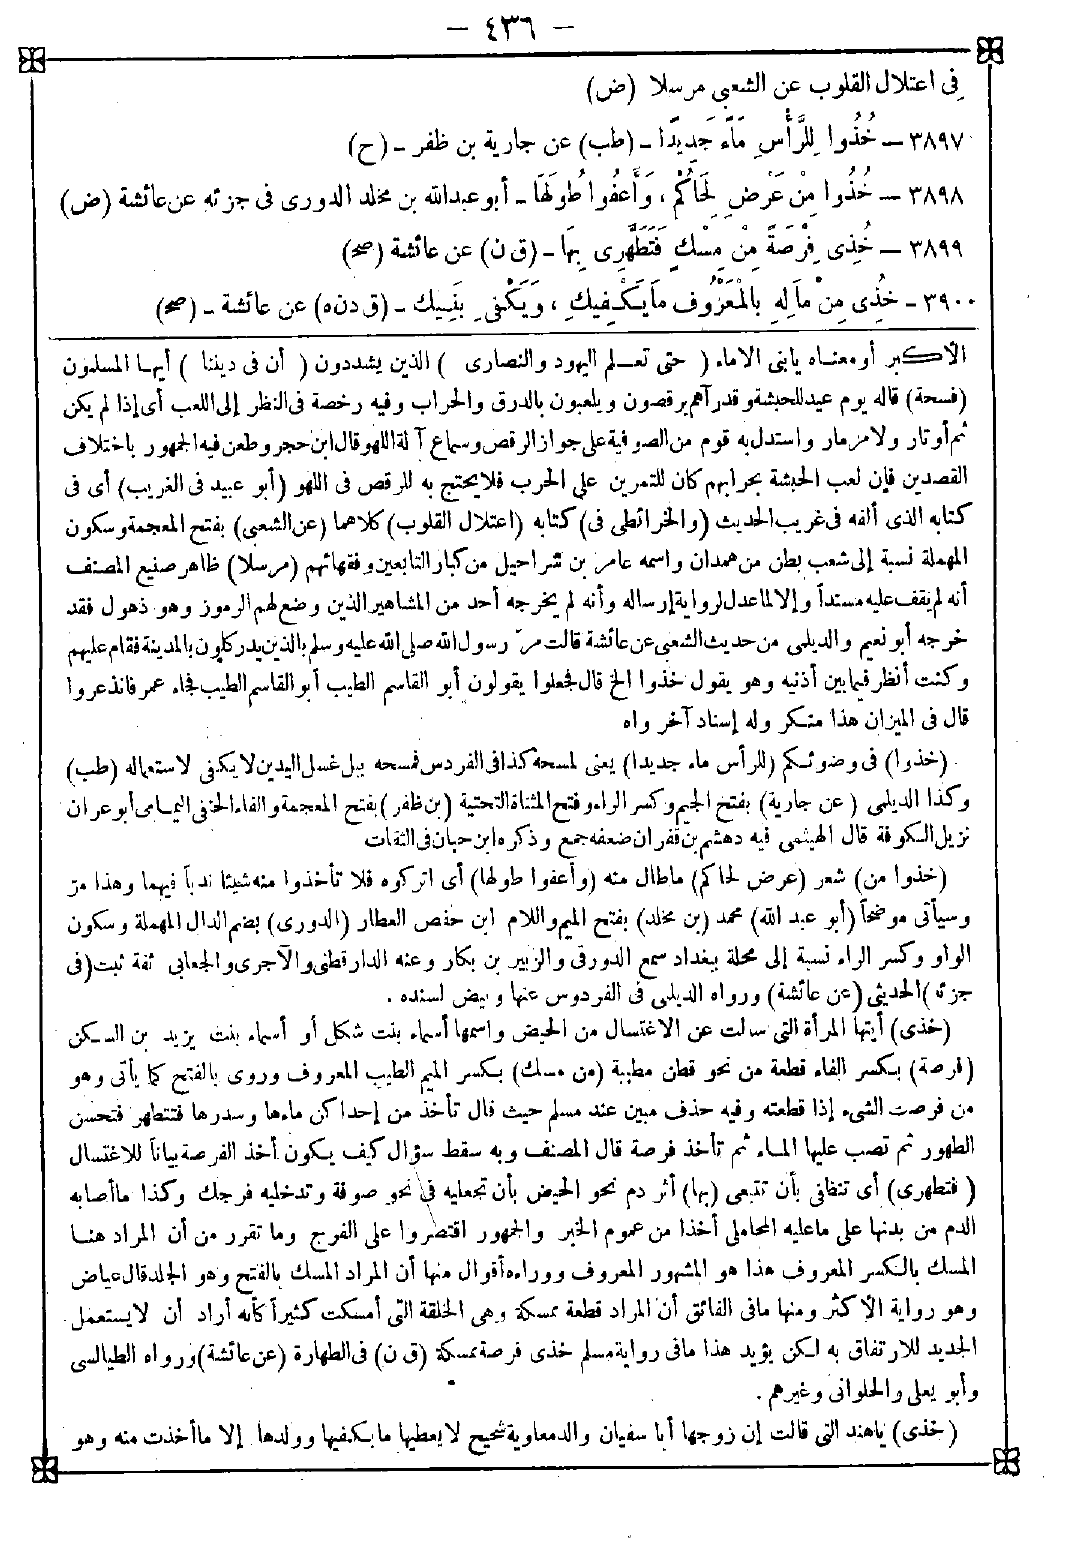 — ٤٣٦ —
فى اعتلال القلوب عن الشعبى مرسلا (ض)
٣٨٩٧ — خُذُوا لِلرَّأْسِ مَاءً جَدِيدًا - (طب) عن جارية بن ظفر - (ح)
٣٨٩٨ — خُذُوا مِنْ عَرْضِ لِحَاكُمْ، وَأَعْفُوا طُولَهَا - أبو عبدالله بن مخلد الدورى فى جزئه عن عائشة (ض)
٣٨٩٩ — خُذِى فِرْصَةً مِنْ مِسْكٍ فَتَطَهَّرِى بِهَا - (ق ن) عن عائشة (صح)
٣٩٠٠ - خُذِى مِنْ مَالِهِ بِالْمَعْرُوفِ مَا يَكْفِيكِ، وَيَكْفِى بَنِيكِ - (ق د ن ه) عن عائشة - (صح)
الأكبر أو معناه يابنى الاماء (حتى تعلم اليهود والنصارى) الذين يشددون (أن فى ديننا) أيها المسلمون
(فسحة) قاله يوم عيد للحبشة وقد رآهم يرقصون ويلعبون بالدرق والحراب وفيه رخصة فى النظر إلى اللعب أى إذا لم يكن
ثم أوتار ولا مزمار واستدل به قوم من الصوفية على جواز الرقص وسماع آلة اللهو قال ابن حجر وطعن فيه الجمهور باختلاف
القصدين فإن لعب الحبشة بحرابهم كان للتمرين على الحرب فلا يحتج به للرقص فى اللهو (أبو عبيد فى الغريب) أى فى
كتابه الذى ألفه فى غريب الحديث (والخرائطى فى) كتابه (اعتلال القلوب) كلاهما (عن الشعبى) بفتح المعجمة وسكون
المهملة نسبة إلى شعب بطن من همدان واسمه عامر بن شراحيل من كبار التابعين وفقهائهم (مرسلا) ظاهر صنيع المصنف
أنه لم يقف عليه مسنداً وإلا لما عدل لرواية إرساله وأنه لم يخرجه أحد من المشاهير الذين وضع لهم الرموز وهو ذهول فقد
خرجه أبو نعيم والديلمى من حديث الشعبى عن عائشة قالت مرّ رسول الله صلى الله عليه وسلم بالذين يدركلون بالمدينة فقام عليهم
وكنت أنظر فيما بين أذنيه وهو يقول خذوا الخ قال فجعلوا يقولون أبو القاسم الطيب أبو القاسم الطيب فجاء عمر فانذعروا
قال فى الميزان هذا منكر وله إسناد آخر واه
(خذوا) فى وضوئكم (للرأس ماء جديدا) يعنى لمسحه كذا فى الفردس فمسحه ببل غسل اليدين لا يكفى لاستعماله (طب)
وكذا الديلمى (عن جارية) بفتح الجيم وكسر الراء وفتح المثناة التحتية (بن ظفر) بفتح المعجمة والفاء الحنفى اليمامى أبو عران
نزيل الكوفة قال الهيثمى فيه دهشم بن قران ضعفه جمع وذكره ابن حبان فى الثقات
(خذوا من) شعر (عرض لحاكم) ماطال منه (وأعفوا طولها) أى اتركوه فلا تأخذوا منه شيئا ندباً فيهما وهذا مرّ
وسيأتى موضحاً (أبو عبد الله) محمد (بن مخلد) بفتح الميم واللام ابن حفص العطار (الدورى) بضم الدال المهملة وسكون
الواو وكسر الراء نسبة إلى محلة ببغداد سمع الدورقى والزبير بن بكار وعنه الدارقطنى والآجرى والجعابى ثقة ثبت (فى
جزئه) الحديثى (عن عائشة) ورواه الديلمى فى الفردوس عنها وبيض لسنده .
(خذى) أيتها المرأة التى سالت عن الاغتسال من الحيض واسمها أسماء بنت شكل أو أسماء بنت يزيد بن السكن
(فرصة) بكسر الفاء قطعة من نحو قطن مطيبة (من مسك) بكسر الميم الطيب المعروف وروى بالفتح كما يأتى وهو
من فرصت الشىء إذا قطعته وفيه حذف مبين عند مسلم حيث قال تأخذ من إحداكن ماءها وسدرها فتتطهر فتحسن
الطهور ثم تصب عليها الماء ثم تأخذ فرصة قال المصنف وبه سقط سؤال كيف يكون أخذ الفرصة بياناً للاغتسال
(فتطهرى) أى تنظافى بأن تتبعى (بها) أثر دم نحو الحيض بأن تجعليه فى نحو صوفة وتدخليه فرجك وكذا ماأصابه
الدم من بدنها على ماعليه المحاملى أخذا من عموم الخبر والجمهور اقتصروا على الفرج وما تقرر من أن المراد هنا
المسك بالكسر المعروف هذا هو المشهور المعروف ووراءه أقوال منها أن المراد المسك بالفتح وهو الجلد قال عياض
وهو رواية الأكثر ومنها مافى الفائق أن المراد قطعة ممسكة وهى الخلقة التى أمسكت كثيراً كأنه أراد أن لايستعمل
الجديد للارتفاق به لكن يؤيد هذا مافى رواية مسلم خذى فرصة ممسكة (ق ن) فى الطهارة (عن عائشة) ورواه الطيالسى
وأبو يعلى والحلوانى وغيرهم .
(خذى) ياهند التى قالت إن زوجها أبا سفيان والد معاوية شحيح لايعطيها مايكفيها وولدها إلا ماأخذت منه وهو